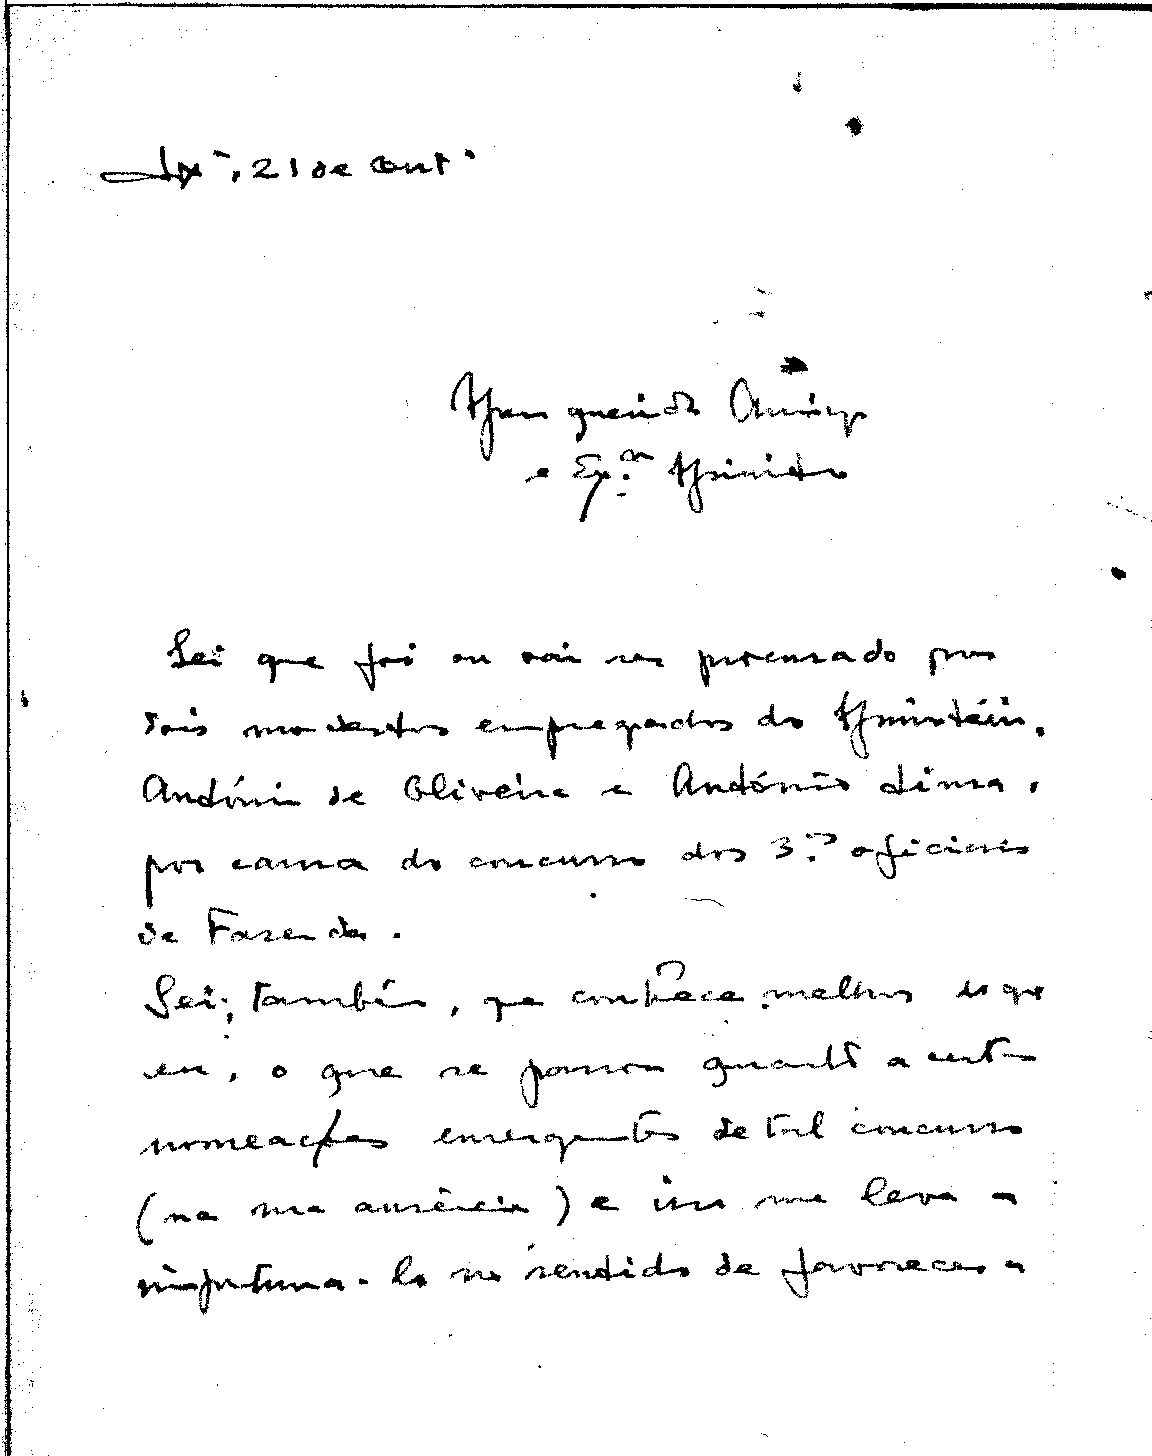 Lxª, 21 de Outº
Meu querido Amigo
e Exmº Ministro
Sei que foi ou vai ser procurado por
dois modestos empregados do Ministério,
António de Oliveira e António Lima,
por causa do concurso dos 3.ºs oficiais
de Fazenda.
Sei, também, que conhece melhor do que
eu, o que se passou quanto a certas
nomeações emergentes de tal concurso
(na sua ausência) e isso me leva a
importuná-lo no sentido de favorecer a